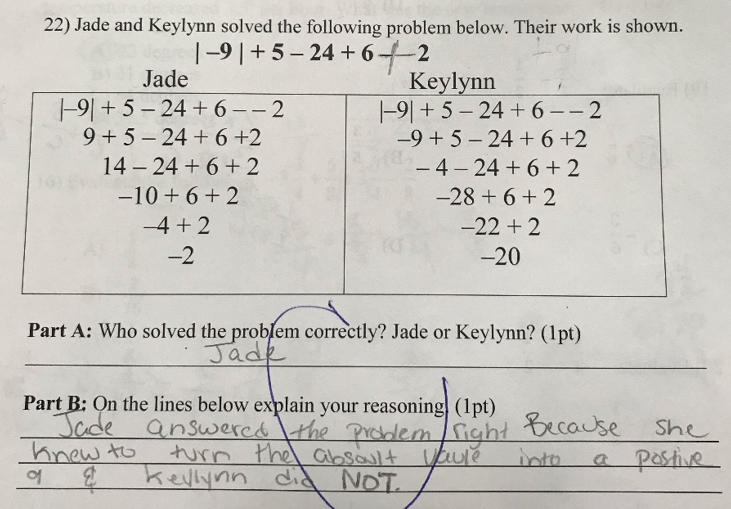 22) Jade and Keylynn solved the following problem below. Their work is shown.
|–9| + 5 – 24 + 6 – –2
Jade Keylynn
|–9| + 5 – 24 + 6 – – 2 |–9| + 5 – 24 + 6 – – 2
9 + 5 – 24 + 6 +2 –9 + 5 – 24 + 6 +2
14 – 24 + 6 + 2 – 4 – 24 + 6 + 2
–10 + 6 + 2 –28 + 6 + 2
–4 + 2 –22 + 2
–2 –20
Part A: Who solved the problem correctly? Jade or Keylynn? (1pt)
Jade
Part B: On the lines below explain your reasoning. (1pt)
Jade answered the problem right Because she
knew to turn the absoult vaule into a postive
9 & Keylynn did NOT.